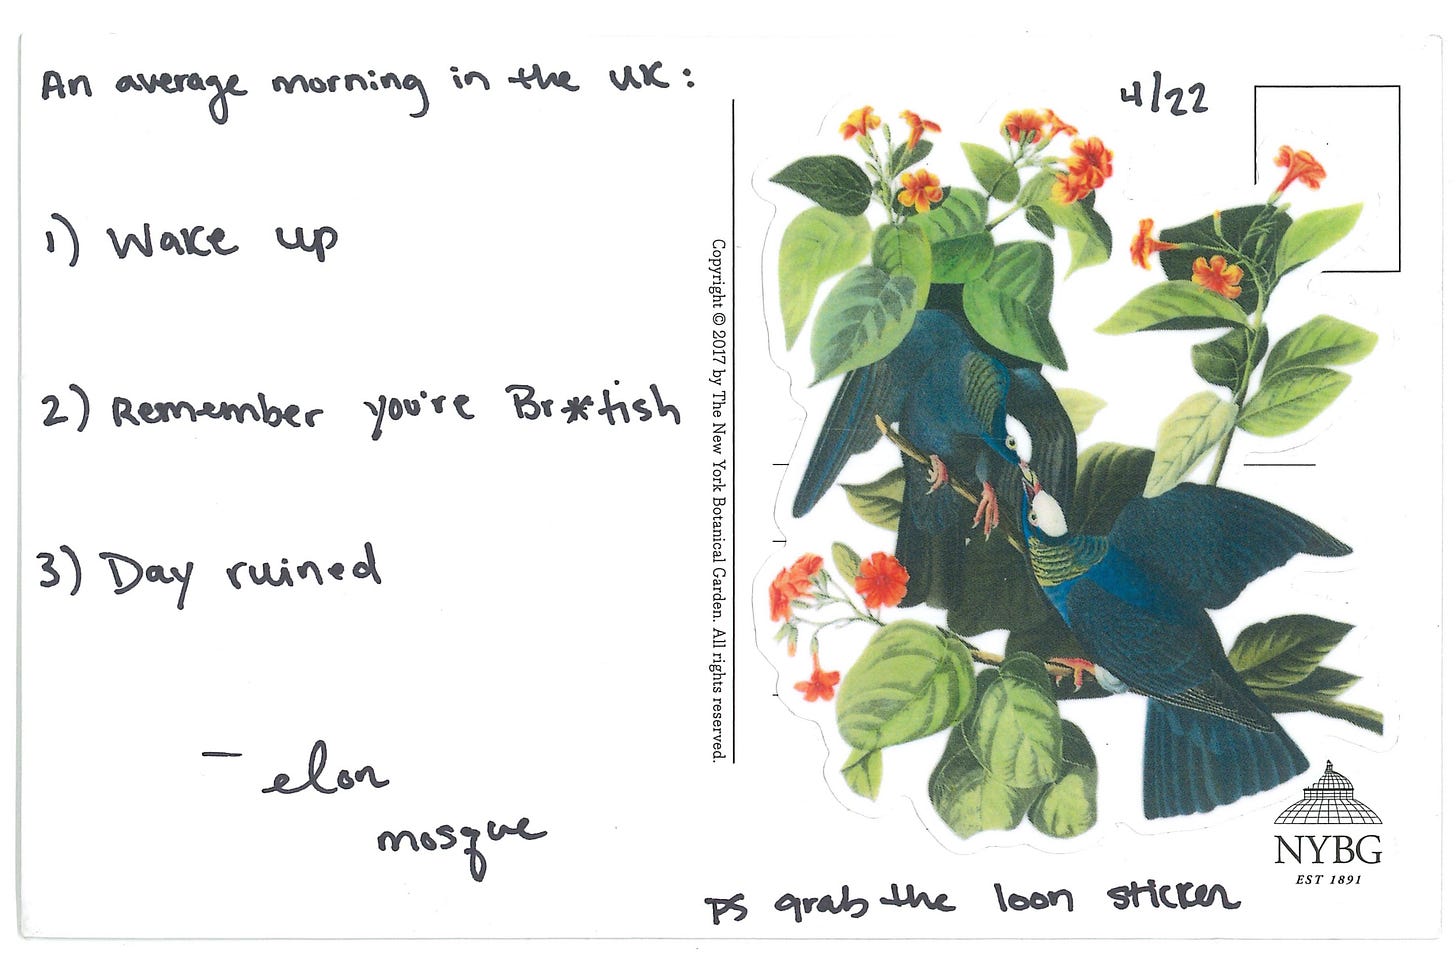 An average morning in the UK:
1) Wake up
2) Remember you're Br*tish
3) Day ruined
- elon
mosque
Copyright © 2017 by The New York Botanical Garden. All rights reserved.
4/22
NYBG
EST 1891
ps grab the loon sticker